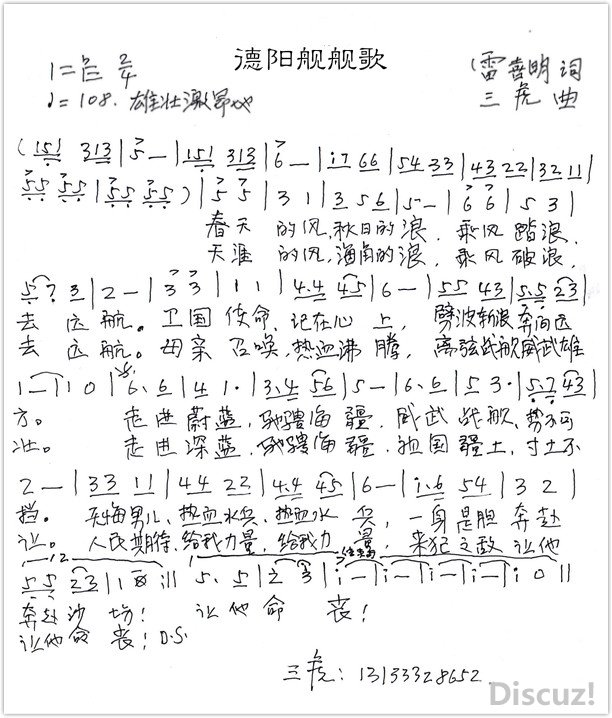 德阳舰舰歌
1=♭E 2/4
(雷喜明 词
♩=108. 雄壮激昂地
三虎 曲
(151 313|5—|151 313|6—|i7 66|54 33|43 22|32 11|
55 55|55 55)|5 5|3 1|3 5 6|5—|6 6|5 3|
春天 的风,秋日的浪, 乘风 踏浪,
天涯 的风,海角的浪, 乘风 破浪,
5 7 3|2—|3 3|1 1|4.4 45|6—|55 43|5.5 23|
去 远航。卫国 使命,记在心 上, 劈波斩浪奔向远
去 远航。母亲 召唤,热血沸 腾, 离弦战舰威武雄
1—|1 0|6. 6|4 1.|3.4 56|5—|6. 6|5 3.|5.7 43|
方。 走进 蔚蓝,驰骋海 疆, 威武 战舰,势不可
壮。 走进 深蓝,驰骋海 疆, 祖国 疆土,寸土不
2—|33 11|44 22|4.4 45|6—|i.6 54|3 2|
挡。 天海男儿、热血水兵、热血水 兵, 一身是胆 奔赴
让。 人民期待,给我力量,给我力 量, 来犯之敌 让他
12
结束句
55 23|1 0:|| 5. 5|2 3|i—|i—|i—|i—|i 0||
奔赴 沙 场! 让他 命 丧!
让他命 丧! D.S.
三虎: 13133328652
Discuz!